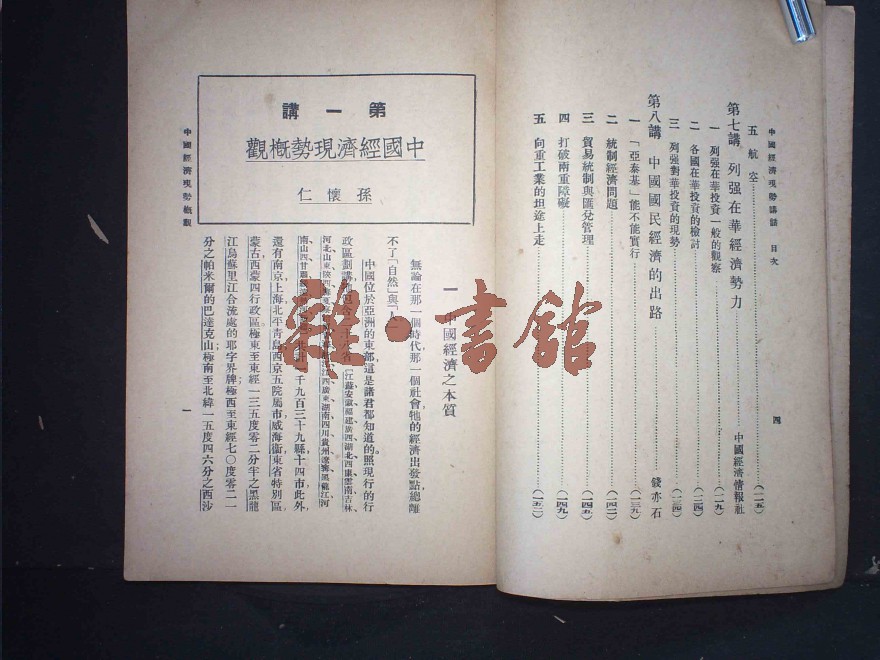 中國經濟現勢講話 目次
四
五 航空……(一一五)
第七講 列强在華經濟勢力……中國經濟情報社
一 列强在華投資一般的觀察……(一一九)
二 各國在華投資的檢討……(一二四)
三 列强對華投資的現勢……(一三四)
第八講 中國國民經濟的出路……錢亦石
一 「亞泰基」能不能實行……(一三九)
二 統制經濟問題……(一四二)
三 貿易統制與匯兌管理……(一四五)
四 打破兩重障礙……(一四九)
五 向重工業的坦途上走……(一五二)
第一講
中國經濟現勢概觀
孫懷仁
一 中國經濟之本質
無論在那一個時代，那一個社會，牠的經濟出發點，總離
不了「自然」與「人」
中國位於亞洲的東部，這是諸君都知道的。照現行的行
政區劃講，包含二十八省（江蘇、安徽、福建、廣西、湖北、西康、雲南、吉林、
河北、山東、陝西、江西、廣東、湖南、四川、貴州、遼寧、黑龍江、河
南、山西、甘肅、一千九百三十九縣，十四市，此外，
還有南京，上海，北平，青島，西京五院屬市，威海衞，東省特別區，
蒙古，西蒙四行政區。極東至東經一三五度零二分半之黑龍
江烏蘇里江合流處的耶字界牌，極西至東經七〇度零二一
分之帕米爾的巴達克山，極南至北緯一五度四六分之西沙
中國經濟現勢概觀
一
雜·書館